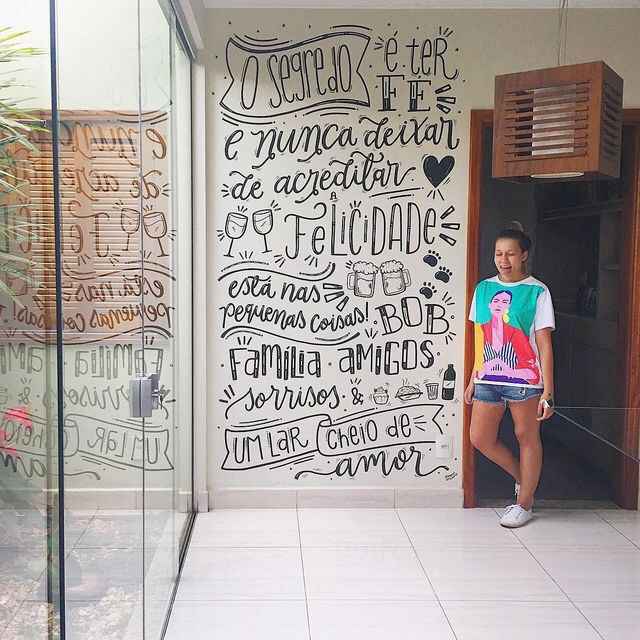 O SEGREDO é TER
FÉ
e nunca deixar
de acreditar
A
FeLICIDADE
está nas
pequenas coisas!
BOB
FAMÍLIA AMIGOS
sorrisos &
UM LAR CHEIO DE
amor